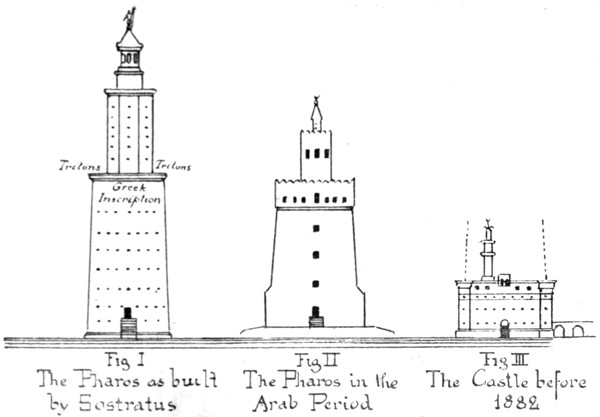 Tritons Tritons
Greek
Inscription
Fig I
The Pharos as built
by Sostratus
Fig II
The Pharos in the
Arab Period
Fig III
The Castle before
1882